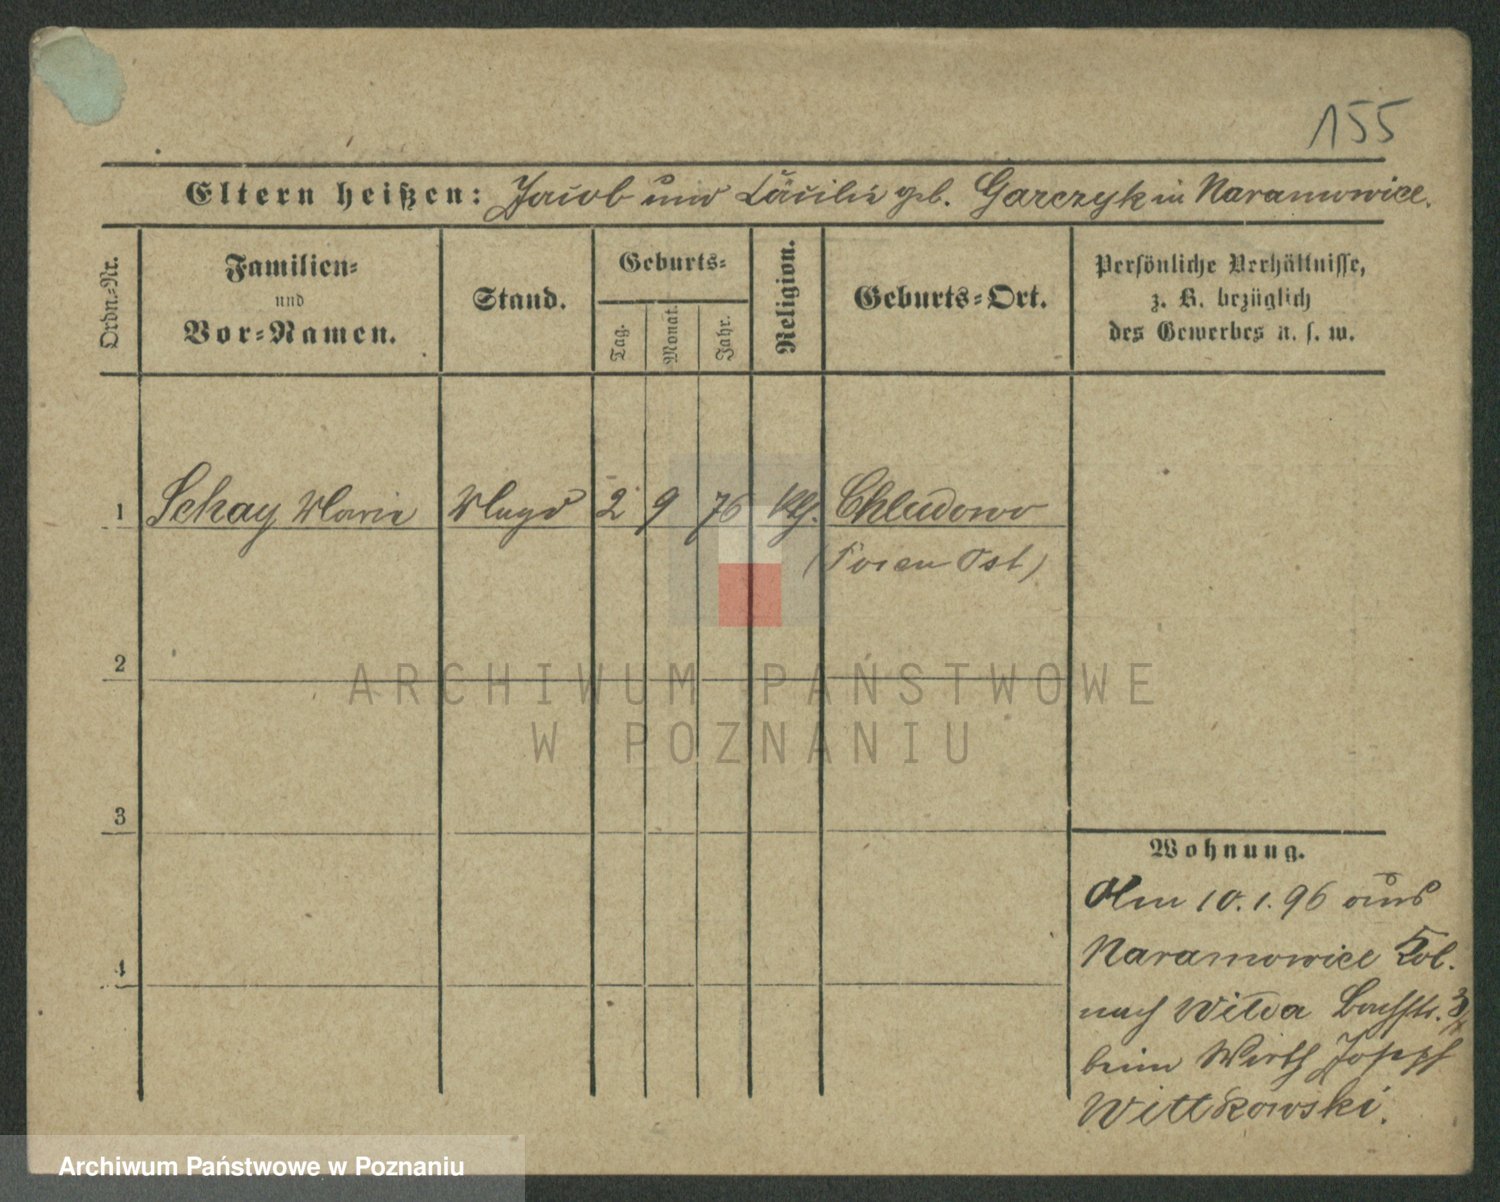 155
Eltern heißen: Jacob und Cäcilie geb. Garczyk in Naramowice.
Ordn.-Nr.
Familien-
und
Vor-Namen.
Stand.
Geburts-
Tag.
Monat.
Jahr.
Religion.
Geburts-Ort.
Persönliche Verhältnisse,
z. B. bezüglich
des Gewerbes u. s. w.
1 Schay Marie Magd 2 9 76 kth. Chludowo
(Posen Ost)
2
3
4
Wohnung.
Am 10.1.96 aus
Naramowice Col.
nach Wilda Bachstr.
beim Wirth Joseph
Wittkowski.
ARCHIWUM PAŃSTWOWE
W POZNANIU
Archiwum Państwowe w Poznaniu